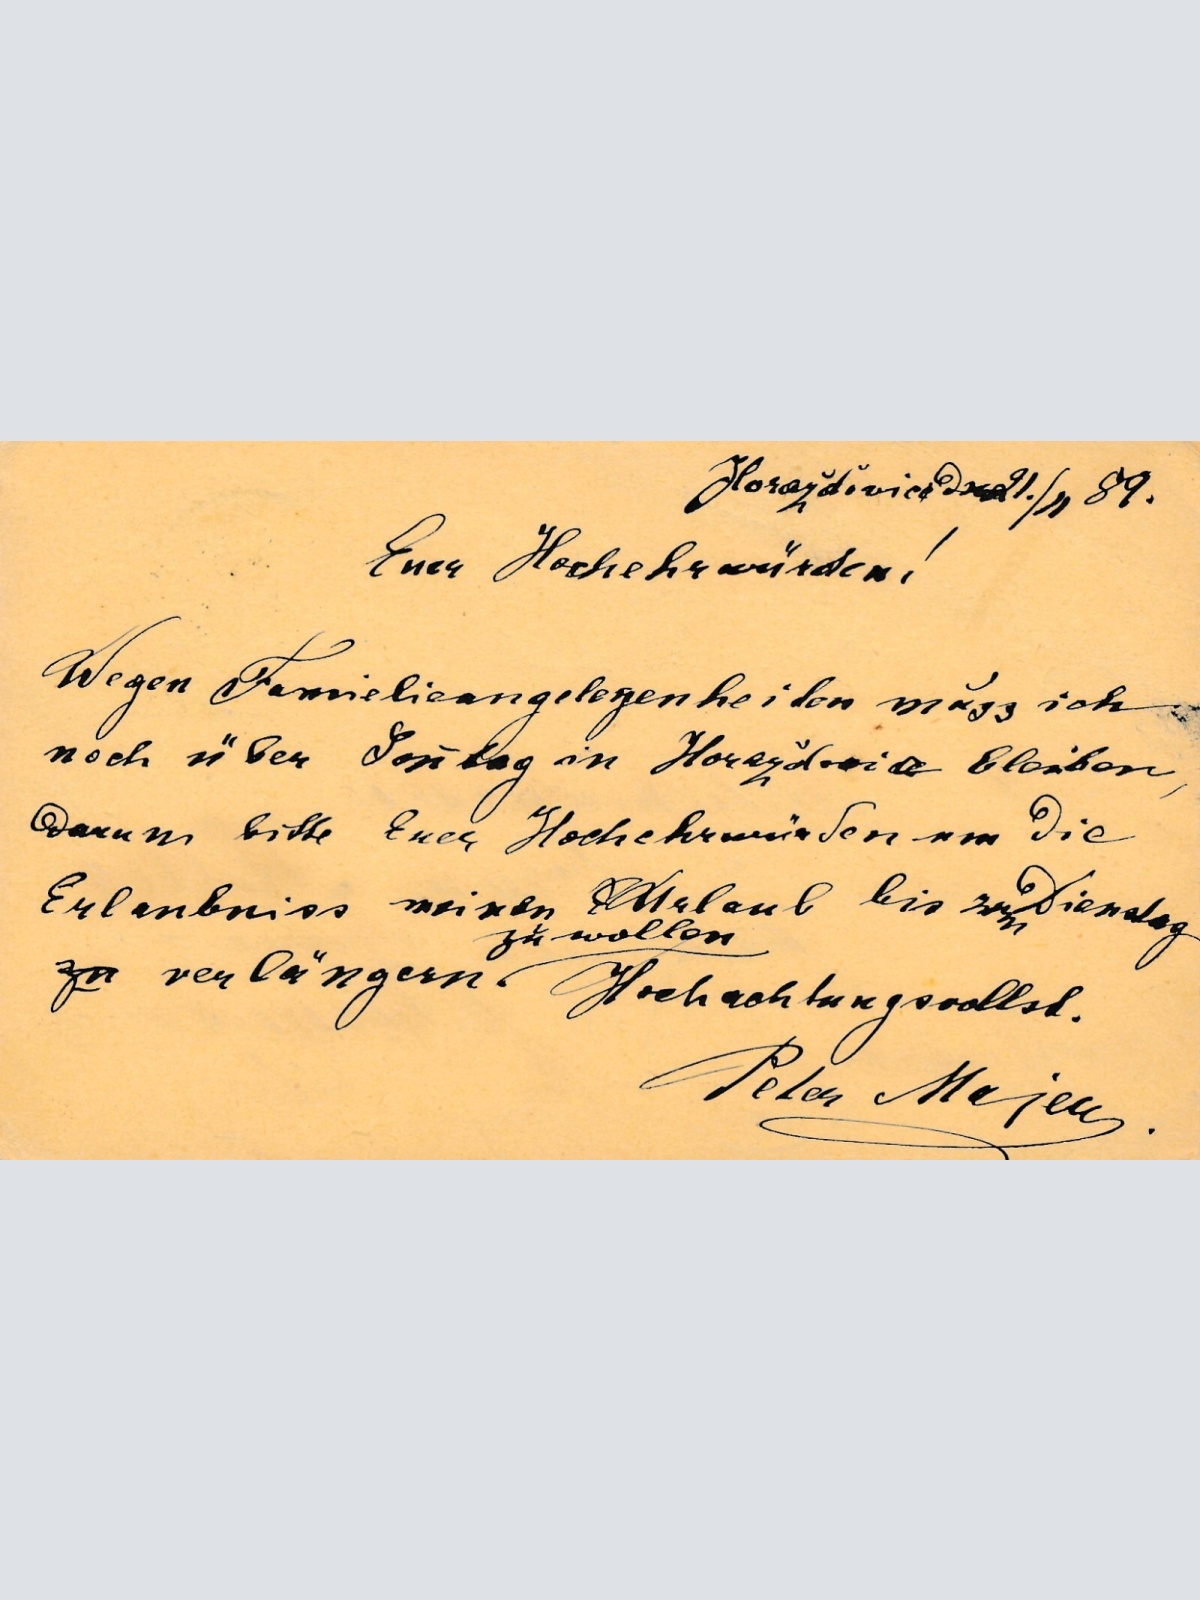 Horažďovic den 21./11 89.
Euer Hochehrwürden!
Wegen Familieangelegenheiten muss ich
noch über Son̄tag in Horažďovic bleiben,
darum bitte Euer Hochehrwürden um die
Erlaubniss meinen Urlaub bis zum Dienstag
zu wollen
zu verlängern.
Hochachtungsvollst.
Peter